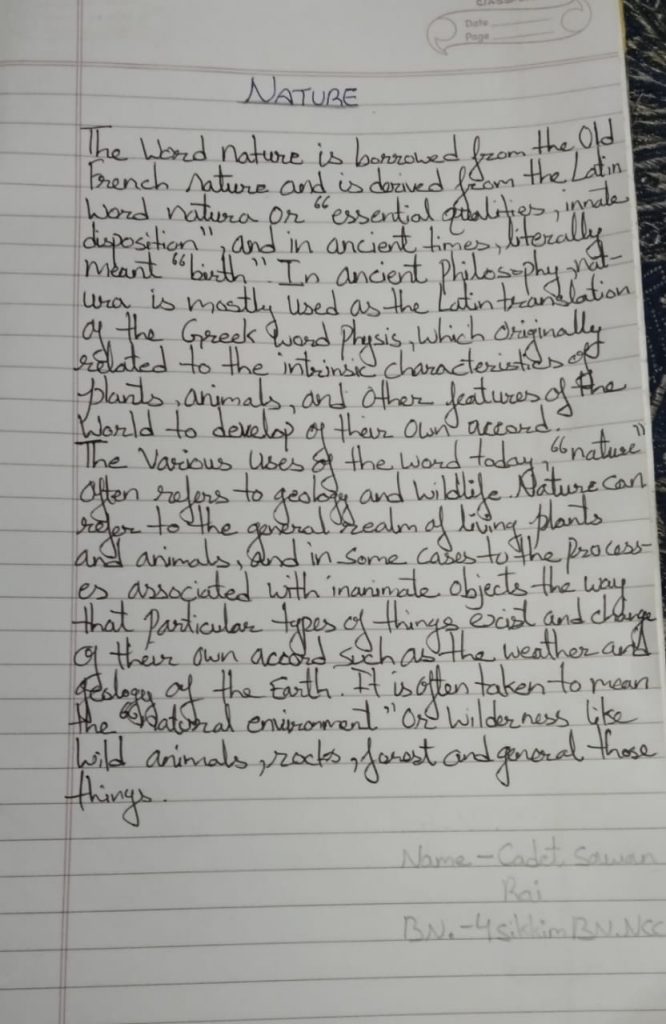 CLASS
Date
Page
NATURE
The Word nature is borrowed from the Old
French nature and is derived from the Latin
Word natura or "essential qualities, innate
disposition", and in ancient times, literally
meant "birth" In ancient Philosophy, nat-
ura is mostly used as the Latin translation
of the Greek word Physis, which originally
related to the intrinsic characteristics of
plants, animals, and other features of the
World to develop of their own accord.
The Various Uses of the word today, "nature"
Often refers to geology and wildlife. Nature can
refer to the general realm of living plants
and animals, and in some cases to the process-
es associated with inanimate objects the way
that Particular types of things exist and change
of their own accord such as the weather and
geology of the Earth. It is often taken to mean
the "Natural environment" Or wilderness like
Wild animals, rocks, forest and general those
things.
Name - Cadet Sawan
Rai
BN. - 4 sikkim BN. NCC